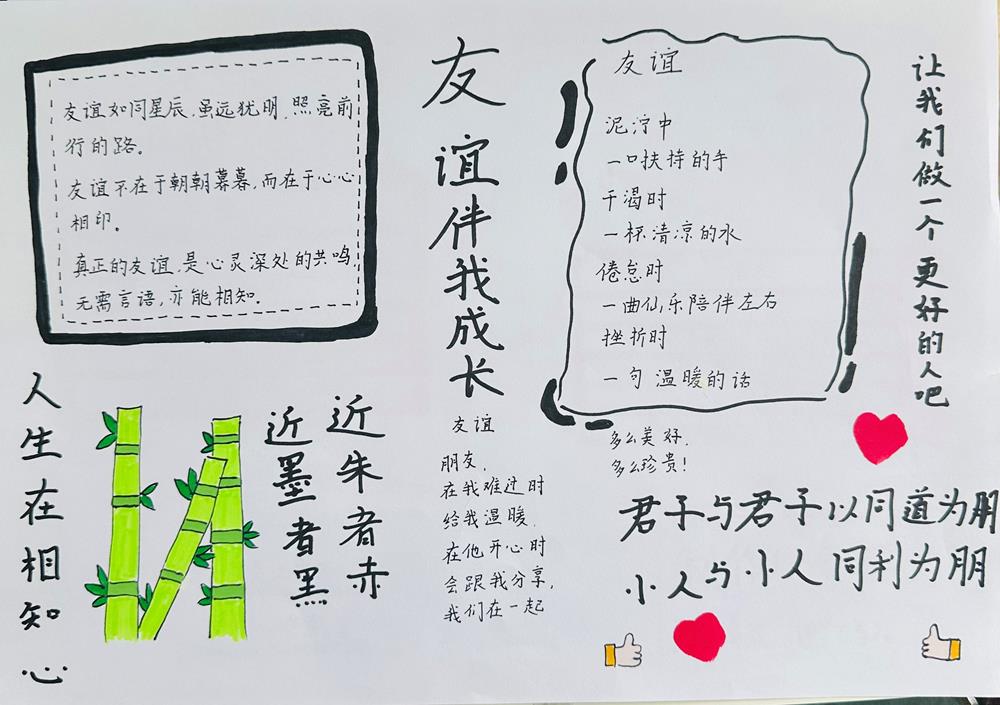 友谊如同星辰,虽远犹明,照亮前
行的路。
友谊不在于朝朝暮暮,而在于心心
相印。
真正的友谊,是心灵深处的共鸣,
无需言语,亦能相知。
友谊伴我成长
友谊
泥泞中
一口扶持的手
干渴时
一杯清凉的水
倦怠时
一曲仙乐陪伴左右
挫折时
一句温暖的话
让我们做一个更好的人吧
人生在相知心
近朱者赤
近墨者黑
友谊
朋友,
在我难过时
给我温暖,
在他开心时
会跟我分享,
我们在一起
多么美好,
多么珍贵!
君子与君子以同道为朋
小人与小人同利为朋